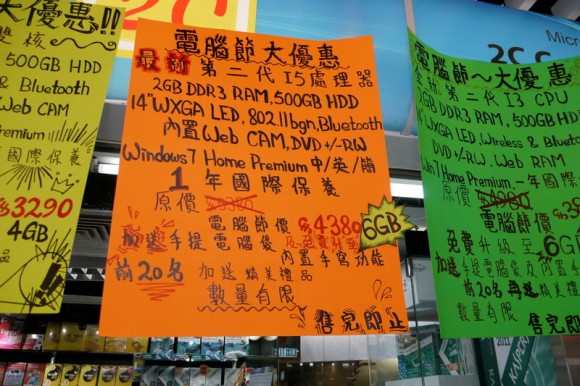 大優惠!!
雙核
500GB HDD
& Bluetooth
Web CAM
Premium
國際保養
$3290
4GB
電腦節大優惠
最新第二代 I5處理器
2GB DDR3 RAM, 500GB HDD
14" WXGA LED, 802.11bgn, Bluetooth
內置 Web CAM, DVD+/-RW
Windows 7 Home Premium 中/英/簡
1年國際保養
原價
電腦節價 $4380
6GB
加送手提電腦袋 及免費升至
內置手寫功能
前20名 加送精美禮品
數量有限
售完即止
Micr
2C
電腦節~大優惠
第二代 I3 CPU
2GB DDR3 RAM, 500GB HD
14" WXGA LED, Wireless & Blueto
DVD+/-RW, Web RAM
Win 7 Home Premium 一年國
原價
電腦節價
免費升級至 6G
加送手提電腦袋及內置手
前20名再送精美禮品
數量有限
售完即
KASPER